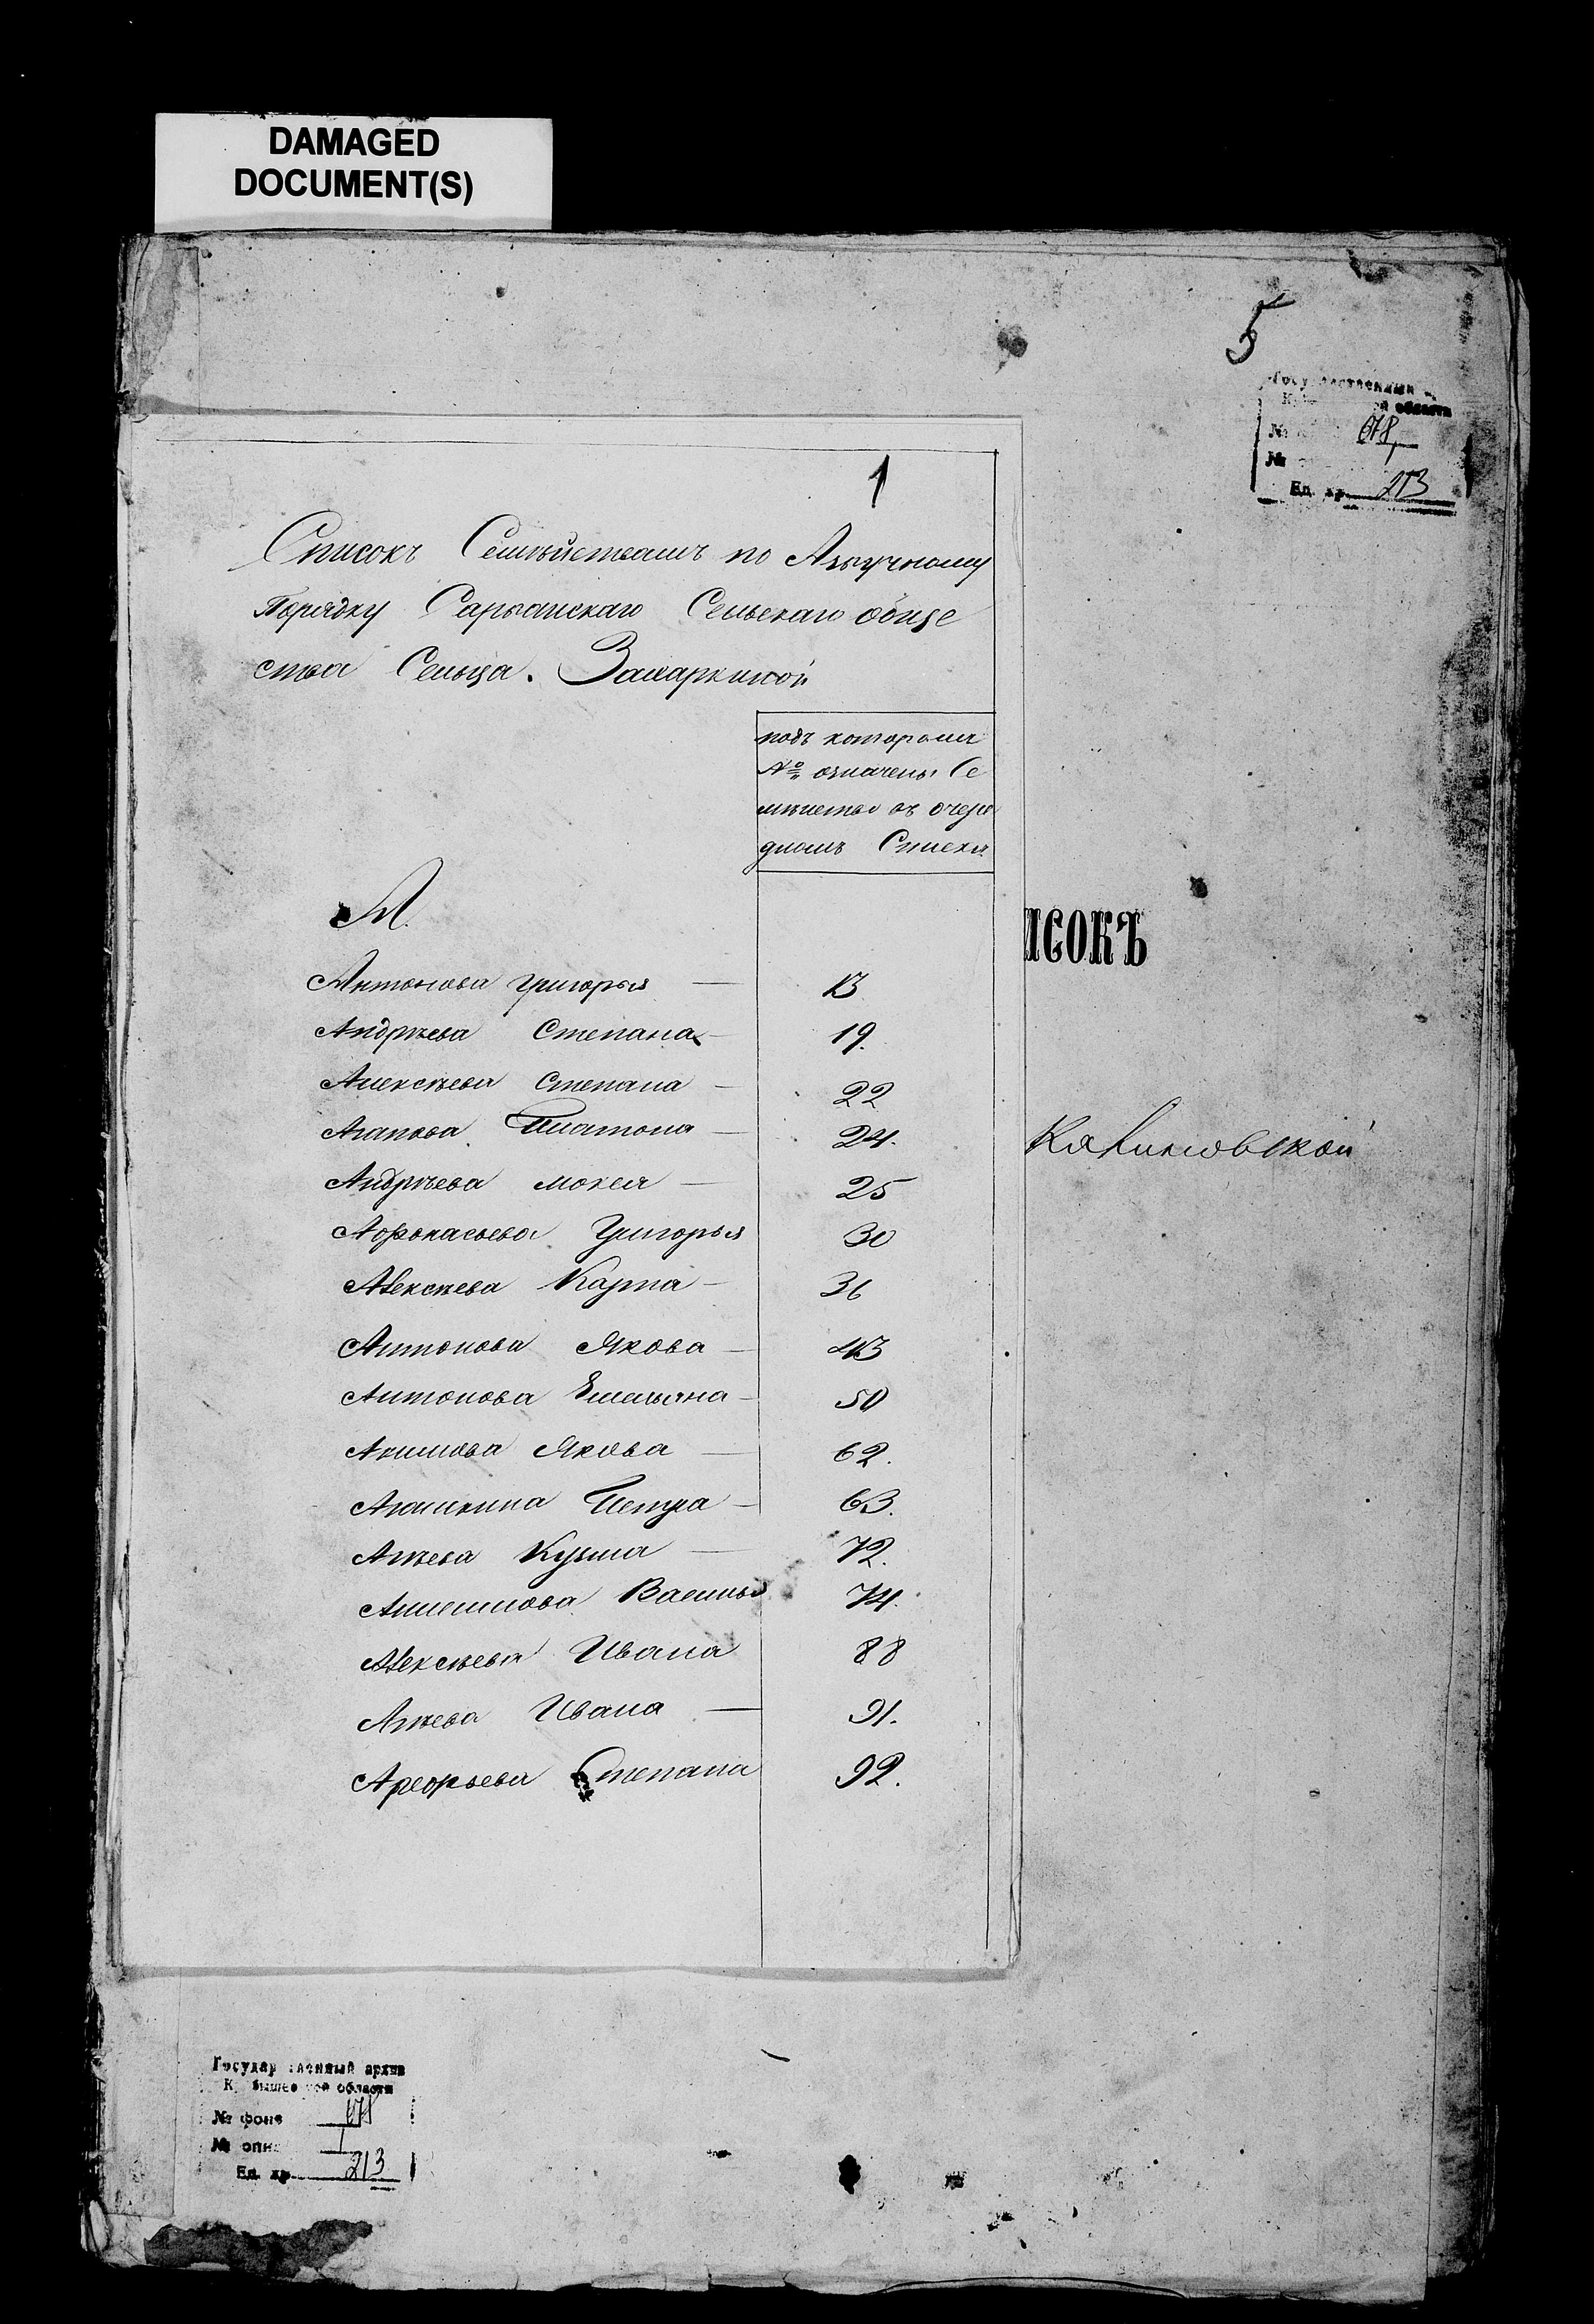 DAMAGED
DOCUMENT(S)
5
Государственный
области
678
№
Ед. хр. 213
1
Списокъ Семѣйствамъ по Азбучному
Порядку Сельскаго обще
ства Сельца. Захаркиной
подъ которомъ
№ означены Се
мѣиство въ очере
дномъ Списки
А.
Антонова Григорья — 13
Андрѣева Степана — 19.
Алексѣева Степана — 22
Агапова Платона — 24.
Андрѣева Мокея — 25
Афонасьева Григорья 30
Алексѣева Карпа — 36
Антонова Якова — 43
Антонова Емельяна — 50
Акимова Якова — 62.
Агашкина Петра — 63.
Агѣева Кузьма — 72.
Василья 74.
Алексѣева Ивана 88
Агѣева Ивана — 91.
Степана 92.
ИСОКЪ
Калиновской
Государственный архив
Куйбышевской области
№ фонд 678
№ опис 1
Ед. хр. 213